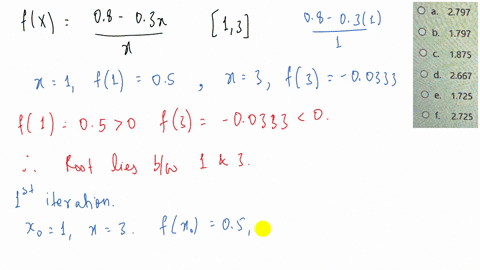 f(x) = (0.8 - 0.3x)/x [1,3] (0.8 - 0.3(1))/1
x = 1, f(1) = 0.5 , x = 3, f(3) = -0.0333
f(1) = 0.5 > 0 f(3) = -0.0333 < 0.
∴ Root lies b/w 1 & 3.
1st iteration.
x₀ = 1, x = 3. f(x₀) = 0.5,
a. 2.797
b. 1.797
c. 1.875
d. 2.667
e. 1.725
f. 2.725